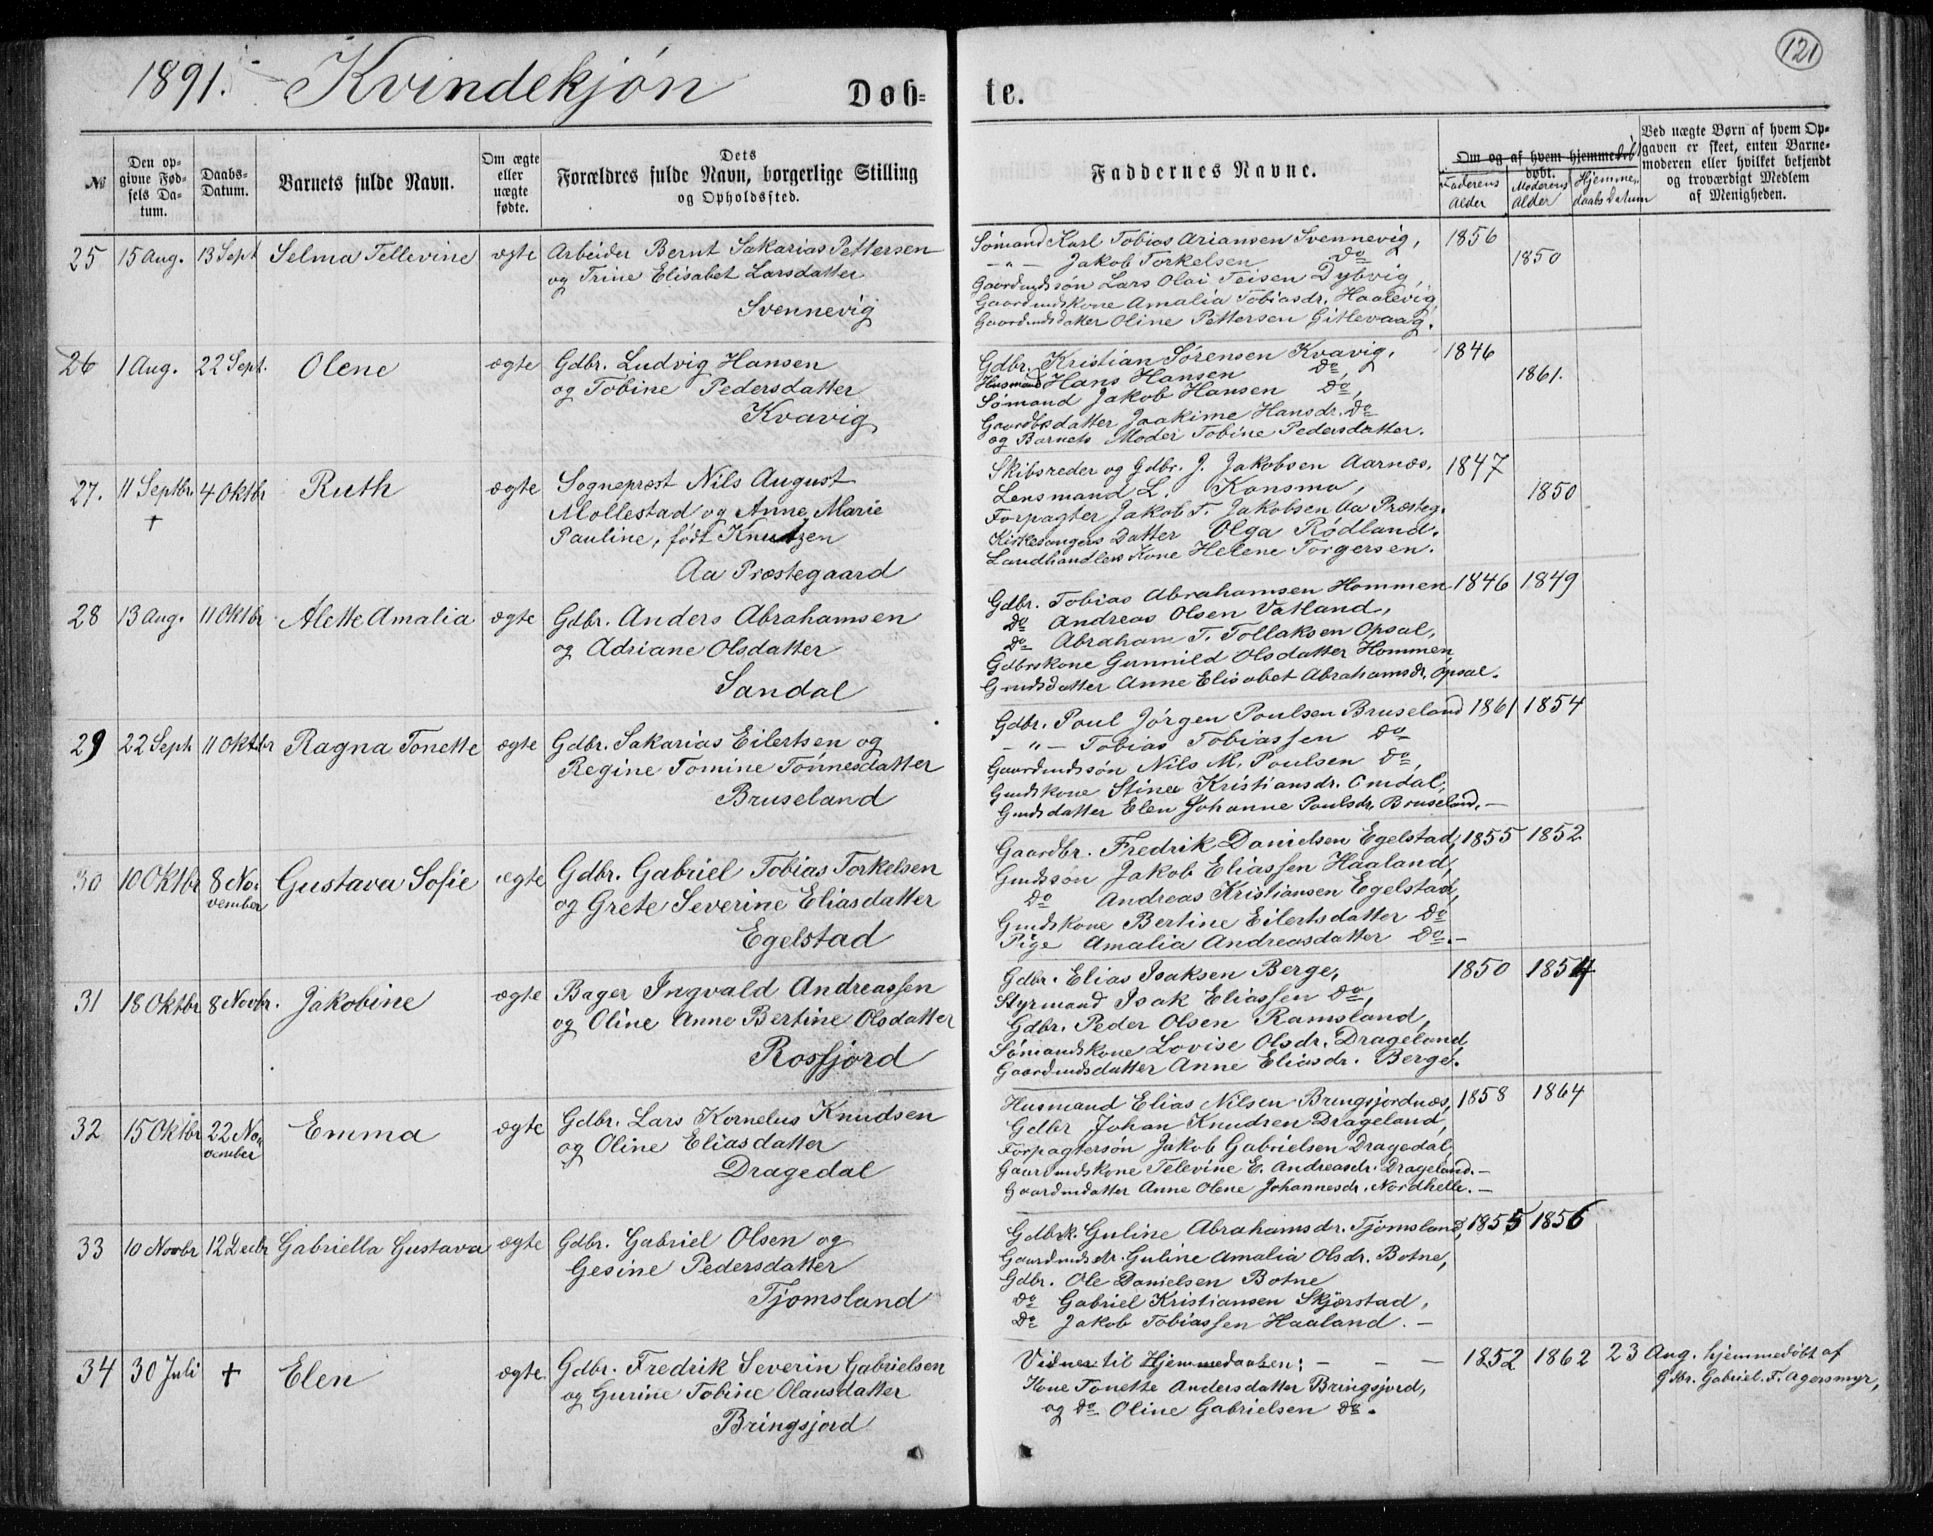 1891. Kvindekjón Døb=
№
Den opgivne Fødsels Datum.
Daabs-Datum.
Barnets fulde Navn.
Om ægte eller uægte fødte.
Dets Forældres fulde Navn, borgerlige Stilling og Opholdsfted.
25 15 Aug. 13 Sept Selma Tellevine ægte Arbeider Bernt Sakarias Pettersen
og Trine Elisabet Larsdatter
Svennevig
26 1 Aug. 22 Sept. Olene ægte Gdbr. Ludvig Hansen
og Tobine Pedersdatter
Kvavig
27. 11 Septbr. 4 Oktbr Ruth ægte Sogneprest Nils August
+ Mollestad og Anne Marie
Pauline, født Knutzen
Aa Præstegaard
28 13 Aug. 11 Oktbr Alette Amalia ægte Gdbr. Anders Abrahamsen
og Adriane Olsdatter
Sandal
29 22 Sept 11 Oktbr Ragna Tonette ægte Gdbr. Sakarias Eilertsen og
Regine Tomine Tónnesdatter
Bruseland
30 10 Oktbr 8 November Gustava Sofie ægte Gdbr. Gabriel Tobias Torkelsen
og Grete Severine Eliasdatter
Egelstad
31 18 Oktbr 8 Novbr. Jakobine ægte Bager Ingvald Andreassen
og Oline Anne Bertine Olsdatter
Rosfjord
32 15 Oktbr 22 November Emma ægte Gdbr. Lars Kornelus Knudsen
og Oline Eliasdatter
Dragedal
33 10 Novbr 12 Decbr Gabriella Gustava ægte Gdbr. Gabriel Olsen og
Gesine Pedersdatter
Tjomsland
34 30 Juli + Elen ægte. Gdbr. Fredrik Severin Gabrielsen
og Gurine Tobine Olausdatter
Bringsjord
te. 121
Faddernes Navne.
Om og af hvem hjemmedøbt.
Faderens Alder
Moderens Alder
Hjemmedaabs Datum
Ved uægte Børn af hvem Opgaven er skeet, enten Barnemoderen eller hvilket bekjendt og troværdigt Medlem af Menigheden.
Sómand Karl Tobias Ariansen Svennevig, 1856
-"- Jakob Torkelsen Do 1850
Gaardmdssón Lars Olai Teisen Dybvig,
Gaardmdskone Amalia Tobiasdr. Haalevig,
Gaardmdsdatter Oline Pettersen Gitlevaag.
Gdbr. Kristian Sórensen Kvavig, 1846
Husmand Hans Hansen Do, 1861.
Sómand Jakob Hansen Do,
Gaardbsdatter Joakime Hansdr. Do
og Barnets Moder Tobine Pedersdatter.
Skibsreder og Gdbr. J. Jakobsen Aarnæs, 1847
Lensmand L. Konsmo, 1850
Forpagter Jakob T. Jakobsen Aa Præsteg.
Kirkesangers Datter OlgaRódland.
Landhandlers Kone Helene Torgersen.
Gdbr. Tobias Abrahamsen Hommen 1846 1849
Do Andreas Olsen Vatland,
Do Abraham T. Tollaksen Opsal,
Gdbrskone Gunnild Olsdatter Hommen
Gmdsdatter Anne Elisabet Abrahamsdr. Opsal.
Gdbr. Poul Jórgen Poulsen Bruseland 1861 1854
-"- Tobias Tobiassen Do
Gaardmdssón Nils M. Poulsen Do,
Gmdskone Stine Kristiansdr. Omdal,
Gmdsdatter Elen Johanne Poulsdr. Bruseland.-
Gaardbr. Fredrik Danielsen Egelstad, 1855 1852
Gmdsson Jakob Eliassen Haaland,
Do Andreas Kristiansen Egelstad,
Gmdskone Bertine Eilertsdatter Do
Pige Amalia Andreasdatter Do.-
Gdbr. Elias Isaksen Berge, 1850 1854
Styrmand Isak Eliassen Do,
Gdbr. Peder Olsen Ramsland,
Sómandskone Lovise Olsdr. Drageland,
Gaardmdsdatter Anne Eliasdr. Berge.
Husmand Elias Nilsen Bringsjordnæs, 1858 1864
Gdbr Johan Knudsen Drageland,
Forpagtersón Jakob Gabrielsen Dragedal,
Gaardmdskone Televine E. Andreasdr. Drageland.-
Gaardmdatter Anne Olene Johannesdr. Nordhelle.-
Gdbrk. Guline Abrahamsdr. Tjomsland, 1855 1856
Gaardmdsdtr. Guline Amalia Olsdr. Botne,
Gdbr. Ole Danielsen Botne
Do Gabriel Kristiansen Skjørstad,
Do Jakob Tobiassen Haaland.-
Vidner til Hjemmedaaben: - - - 1852 1862 23 Aug. hjemmedøbt af
Gdbr. Gabriel F. Agersmyr,
Kone Tonette Andersdatter Bringsjord,
og Do Oline Gabrielsen Do.